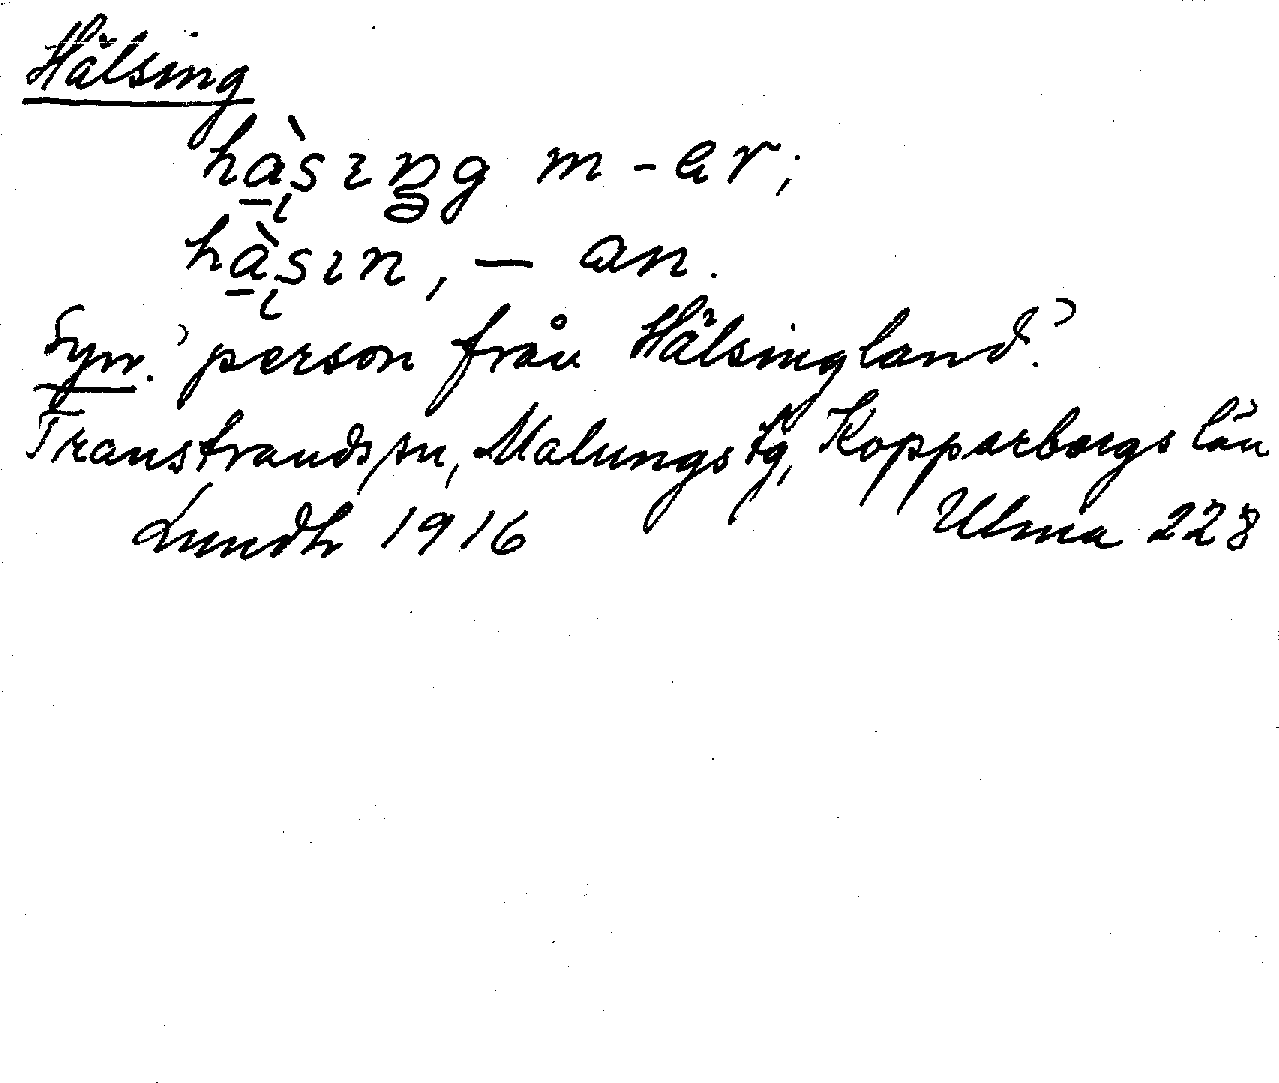 Hälsing
hà̱ı̨sıŋg m -ar;
hà̱ı̨sın, – an.
Syn. 'person från Hälsingland.'
Transtrands sn, Malungs tg, Kopparbergs län
Lundh 1916 Ulma 228